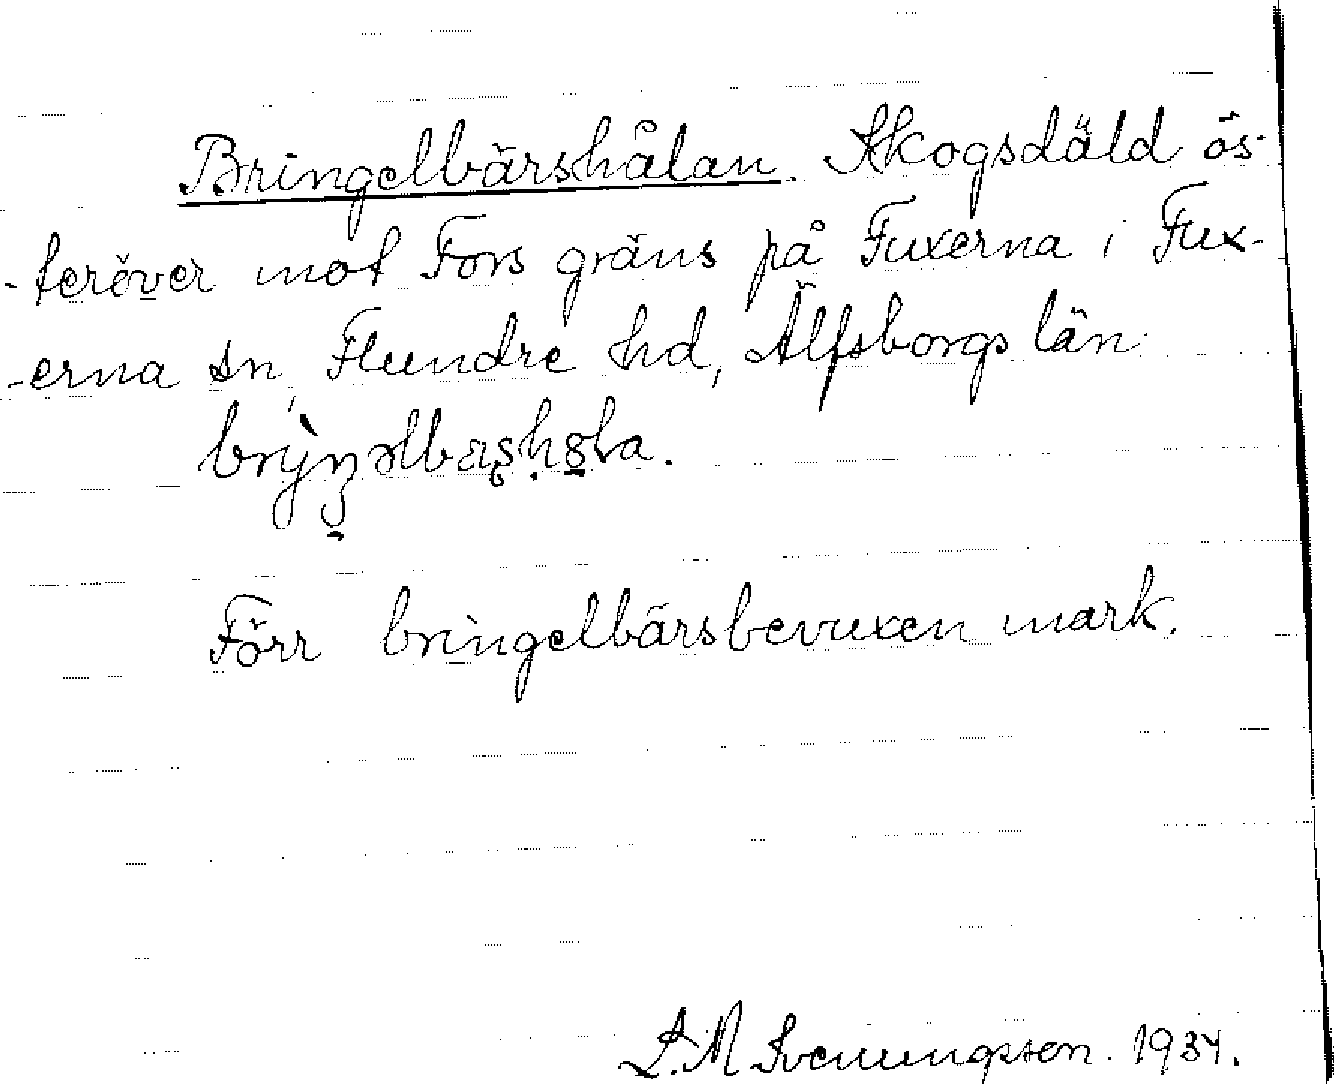 Bringelbärshålan. Skogsdäld ös-
-teröver mot Fors gräns på Fuxerna i Fux-
-erna sn, Flundre hd, Älfsborgs län
Förr bringelbärsbevuxen mark.
L.M Svenungsson. 1934.